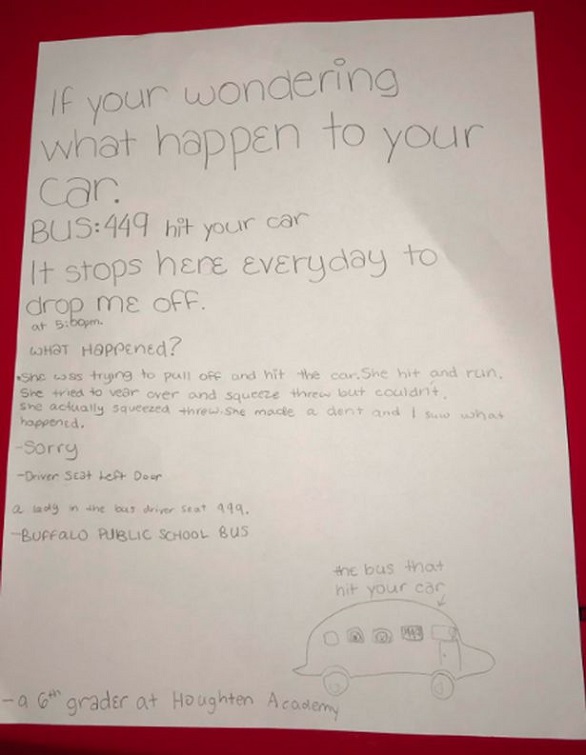 If your wondering
what happen to your
car.
BUS:449 hit your car
It stops here everyday to
drop me off.
at 5:00pm.
WHAT HAPPENED?
•She was trying to pull off and hit the car. She hit and run.
She tried to vear over and squeeze threw but couldn't.
She actually squeezed threw. She made a dent and I saw what
happened.
-Sorry
-Driver Seat Left Door
a lady in the bus driver seat 449.
-BUFFALO PUBLIC SCHOOL BUS
the bus that
hit your car
449
-a 6th grader at Houghten Academy